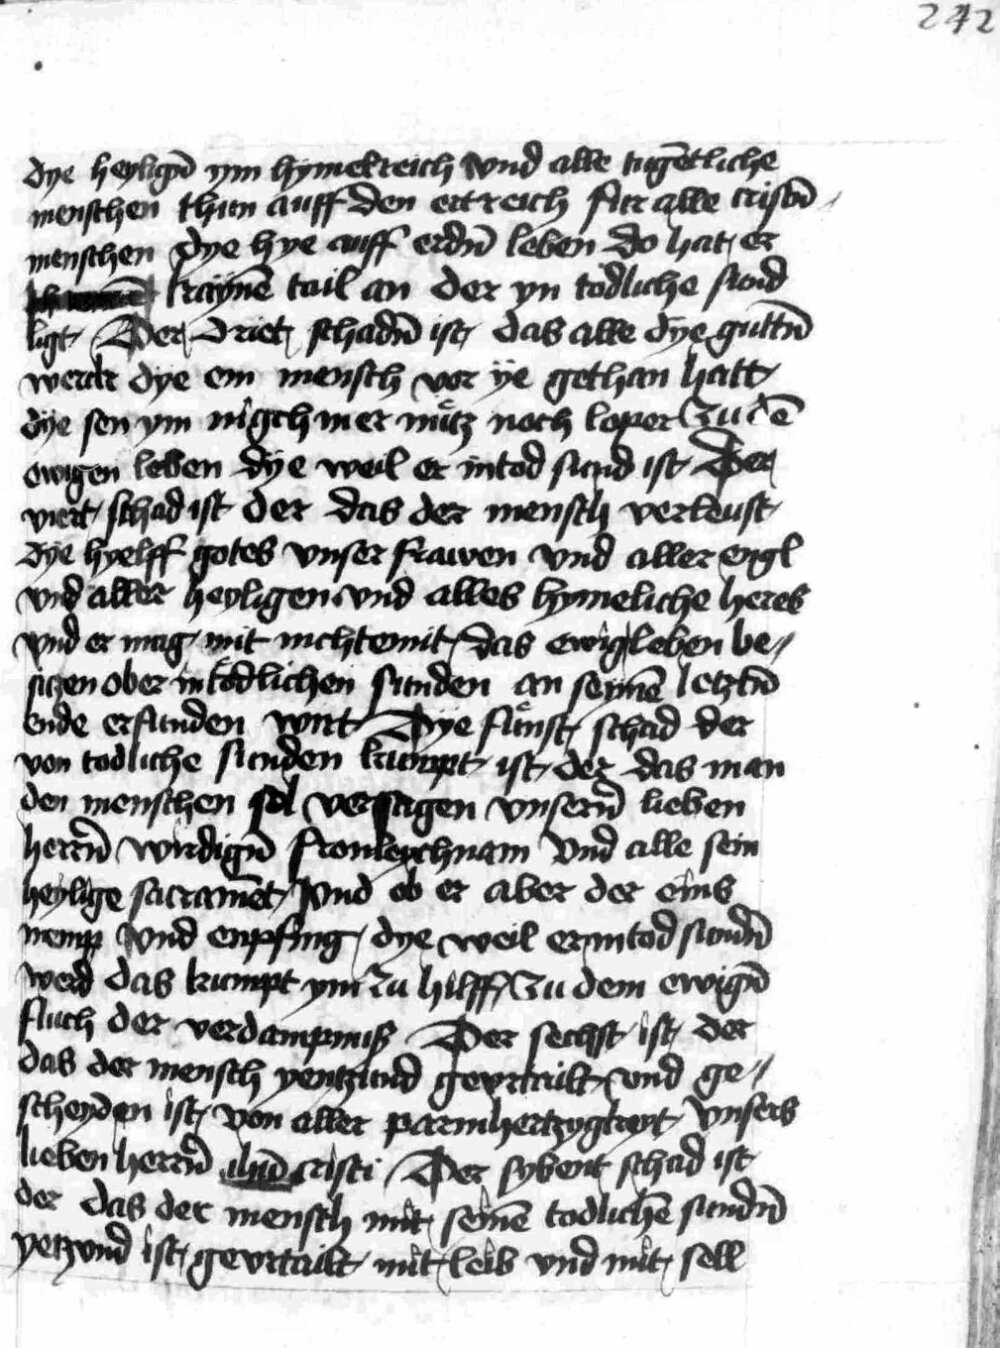 242
dye heyligñ ym hymelreich vnd alle tugētliche
menschen thun auff den ertreich fur alle cristñ
menschen dye hye auff erdñ leben do hat er
kaynē tail an der yn todliche sund
ligt Der driet schadñ ist das alle dye guttñ
werck dye ein mensch vor ye gethan hatt
dye sen ym nigch mer nutz noch loper zu dē
ewigen leben dye weil er in tod sund ist Der
viert schad ist der das der mensch verleust
dye hyelff gotes vnser frawen vnd aller engl
vnd aller heyligen vnd alles hymeliche heres
vnd er mag mit nichte mit das ewig leben be-
siczen ob er in todlichen sunden an seynē letztñ
ende erfunden wirt Dye funft schad der
von todliche sunden kumpt ist der das man
den menschen sol versagen vnserñ lieben
herrñ wirdigñ fronleychnam vnd alle sein
heylige sacramēt vnd ob er aber der eins
nemp vnd enpfing dye weil er in tod sundñ
werd das kumpt ym zu hilff zu dem ewigñ
fluch der verdampniß Der sechst ist der
das der mensch yentzund gevrtailt vnd ge-
scheyden ist von aller parmhertzygkeyt vnsers
lieben herrñ cristi Der sybent schad ist
der das der mensch mit seinē todlichē sundñ
yetzvnd ist gevrtailt mit leib vnd mit sell